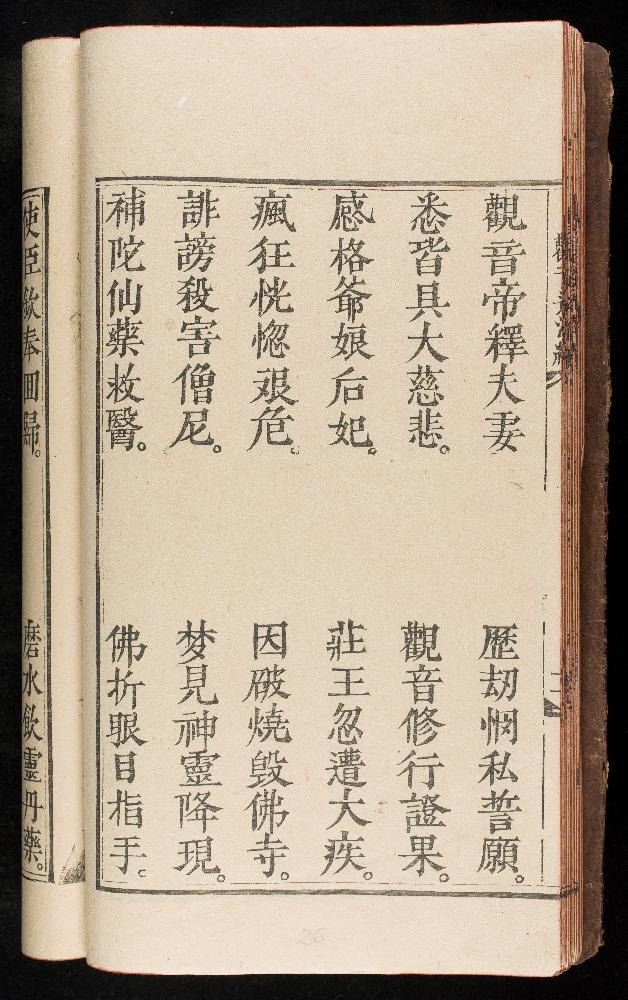 觀音帝釋夫妻 歷劫惘私誓願。
悉皆具大慈悲。 觀音修行證果。
感格爺娘后妃。 莊王忽遭大疾。
瘋狂恍惚艰危。 因破燒毀佛寺。
誹謗殺害僧尼。 梦見神靈降現。
補陀仙藥救醫。 佛折眼目指手。
使臣欽奉回歸。 磨水飲靈丹藥。
26